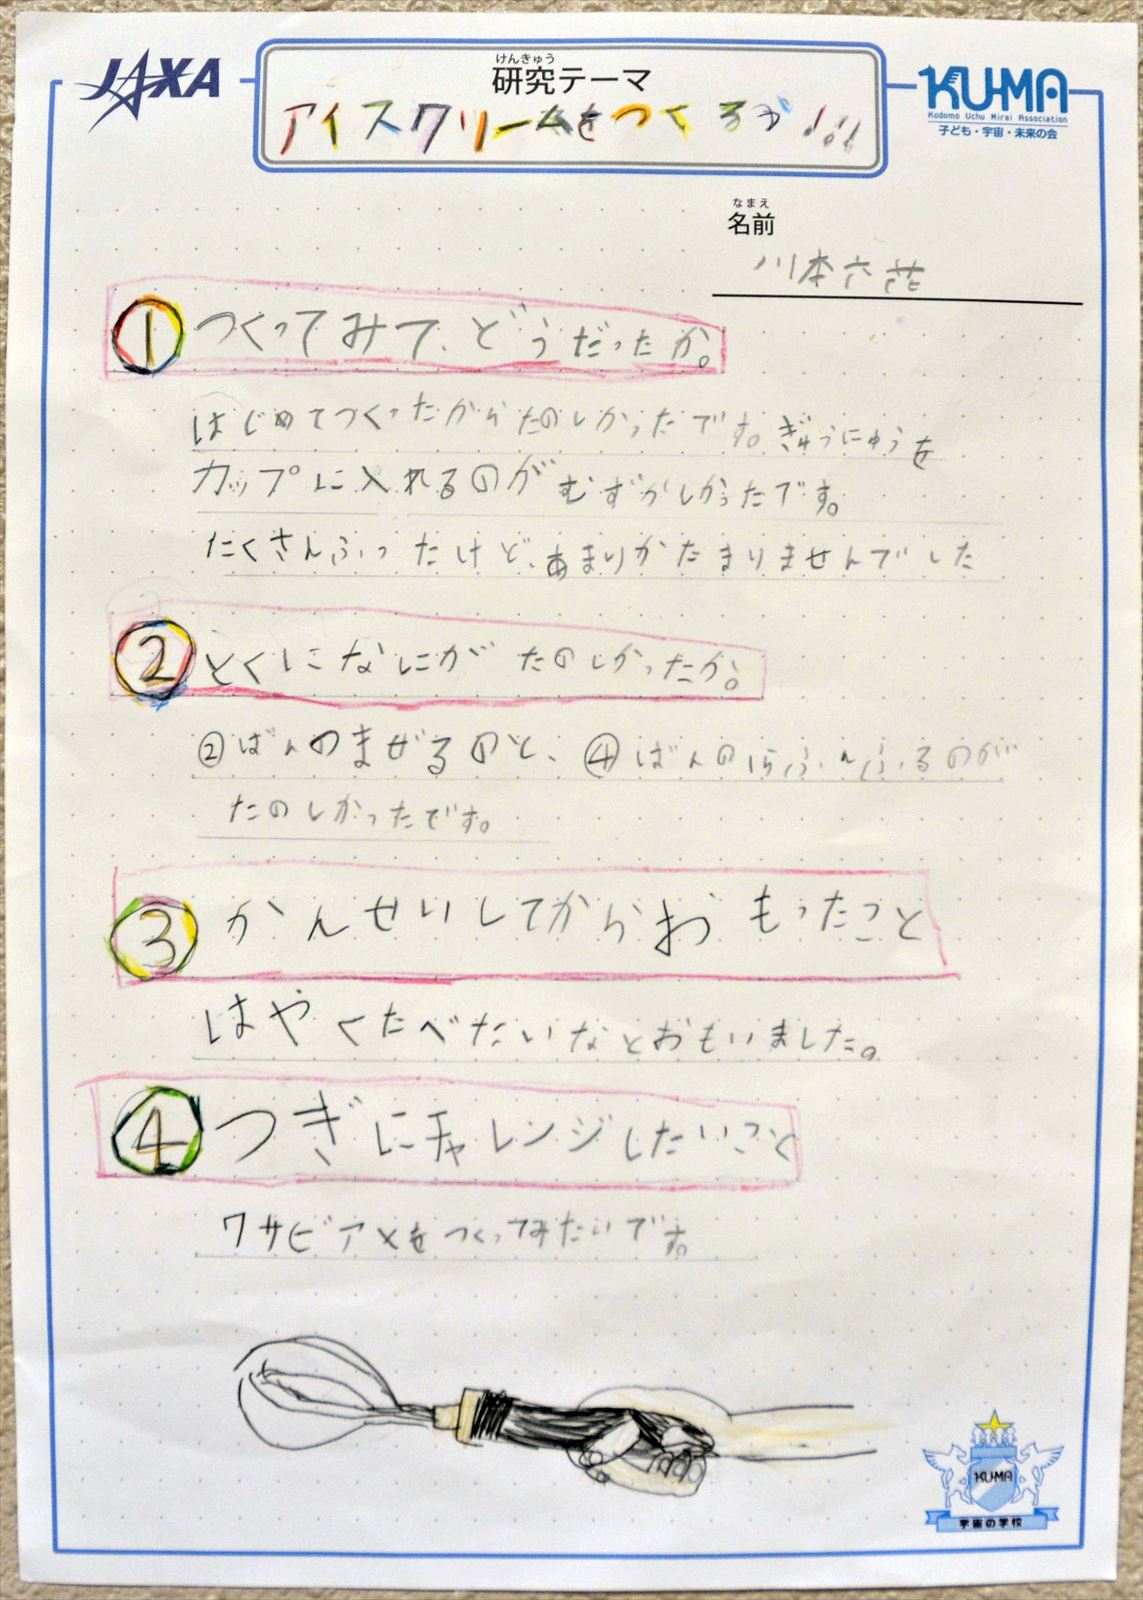 JAXA
けんきゅう
研究テーマ
アイスクリームをつくるぞ!!!
KU-MA
Kodomo Uchu Mirai Association
子ども・宇宙・未来の会
なまえ
名前
川本六花
① つくってみて、どうだったか。
はじめてつくったからたのしかったです。ぎゅうにゅうを
カップに入れるのがむずかしかったです。
たくさんふったけど、あまりかたまりませんでした
② とくになにがたのしかったか。
②ばんのまぜるのと、④ばんの15ふんふるのが
たのしかったです。
③ かんせいしてからおもったこと
はやくたべたいなとおもいました。
④ つぎにチャレンジしたいこと
ワサビアメをつくってみたいです。
KU-MA
宇宙の学校